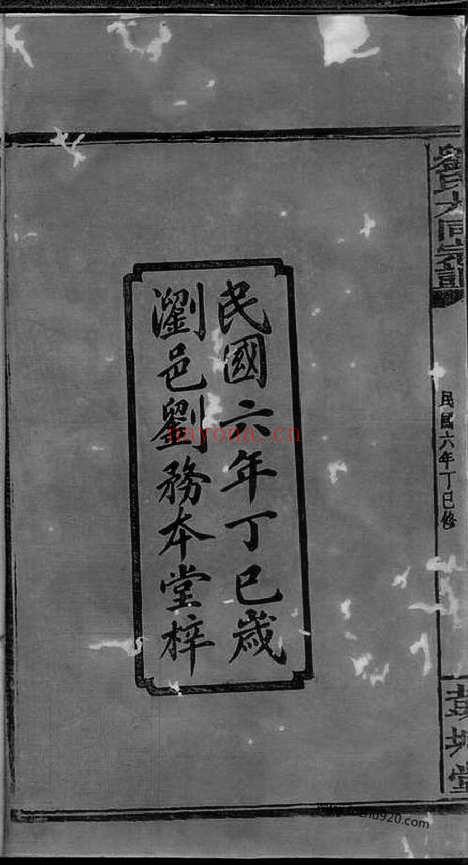 劉氏大同宗譜
民國六年丁巳修
彭城堂
民國六年丁巳歲
瀏邑劉務本堂梓
nayona.cn